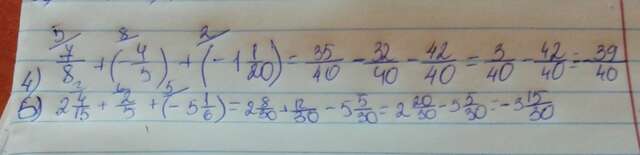 4) 5/ 7/8 + 8/ (- 4/5) + 2/ (- 1 1/20) = 35/40 - 32/40 - 42/40 = 3/40 - 42/40 = - 39/40
5) 2 2/ 4/15 + 6/ 2/5 + 5/ (- 5 1/6) = 2 8/30 + 12/30 - 5 5/30 = 2 20/30 - 5 5/30 = - 3 15/30